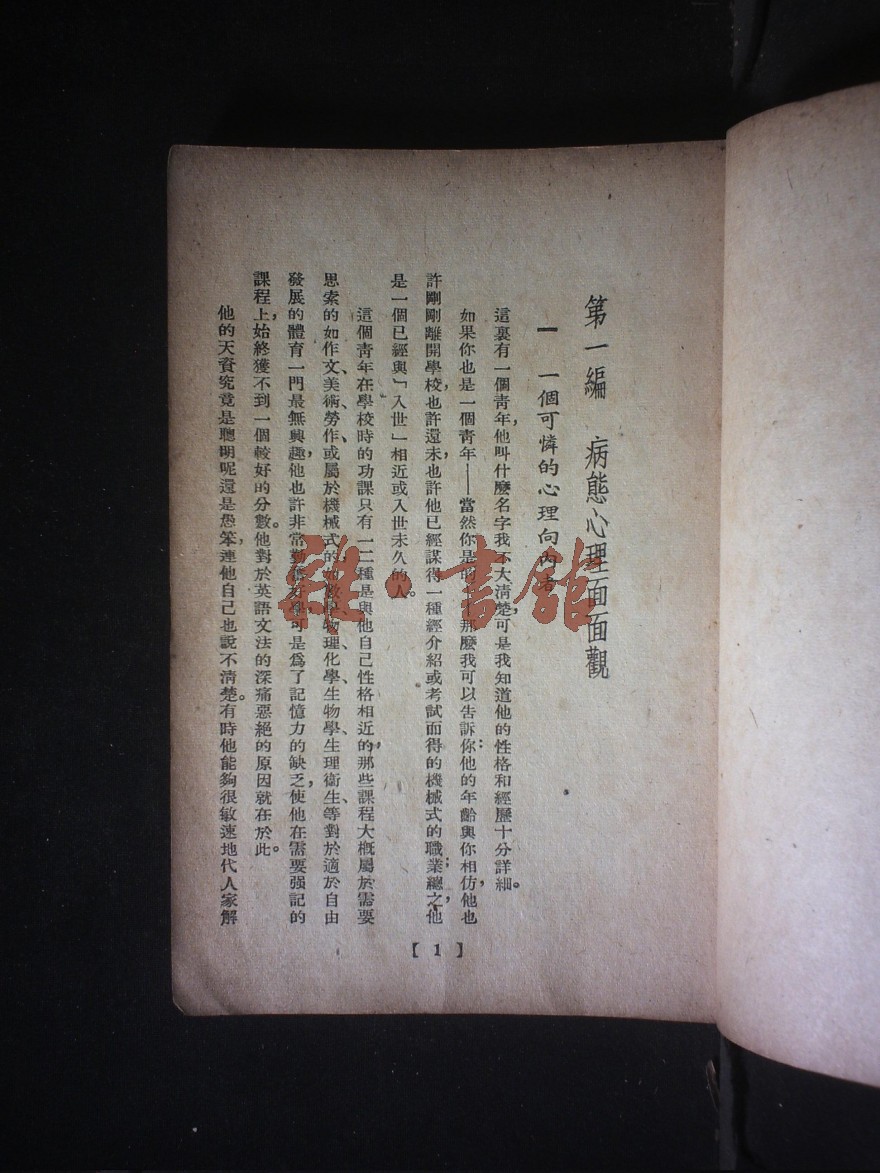 第一編　病態心理面面觀
一　一個可憐的心理向內者
這裏有一個靑年，他叫什麼名字我不大淸楚，可是我知道他的性格和經歷十分詳細。
如果你也是一個靑年——當然你是的，那麼我可以吿訴你：他的年齡與你相仿，他也
許剛剛離開學校，也許還未，也許他已經謀得一種經介紹或考試而得的機械式的職業；總之，他
是一個已經與「入世」相近或入世未久的人。
這個靑年在學校時的功課只有一二種是與他自己性格相近的，那些課程大槪屬於需要
思索的如作文、美術、勞作、或屬於機械式的如數學、物理、化學、生物學、生理衞生、等對於適於自由
發展的體育一門最無興趣，他也許非常勤懇好學，可是爲了記憶力的缺乏，使他在需要强記的
課程上，始終獲不到一個較好的分數。他對於英語文法的深痛惡絕的原因就在於此。
他的天資究竟是聰明呢還是愚笨，連他自己也說不淸楚。有時他能夠很敏速地代人家解
【1】
雜·書舘